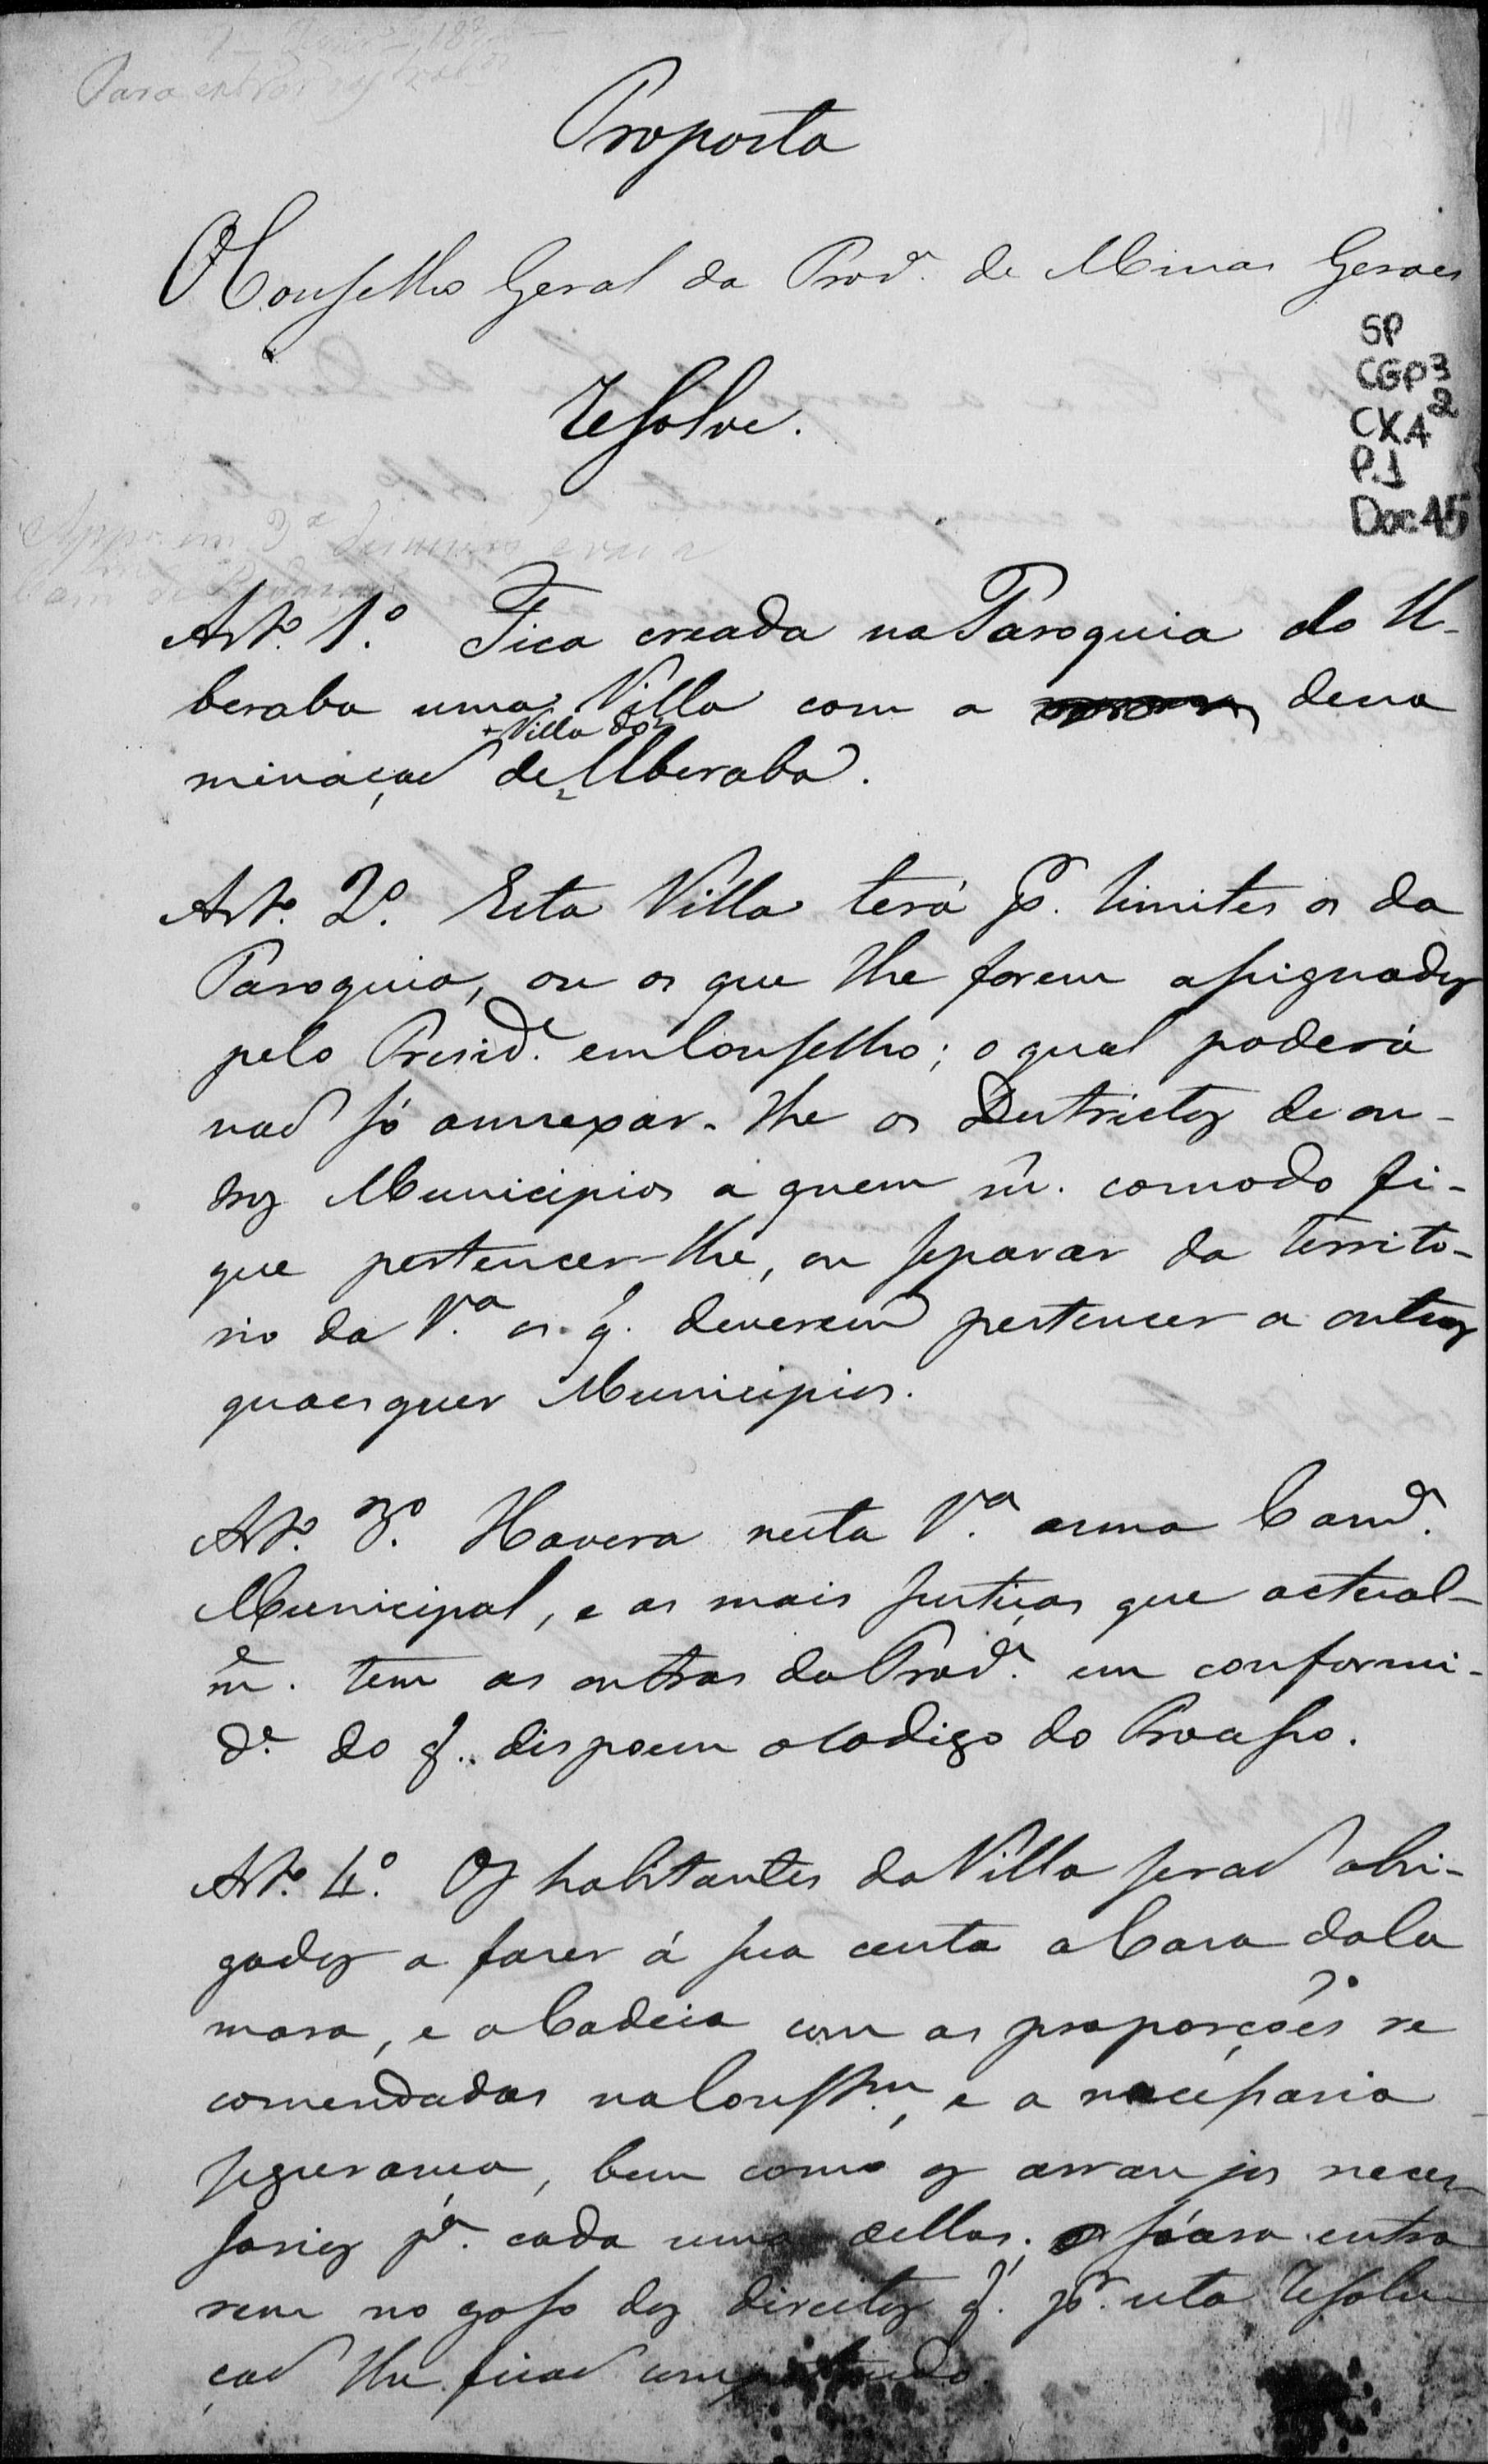 Para entrar
Proposta
O Conselho Geral da Prov.ª de Minas Geraes
SP
CGP3
CX.42
P.1
Doc 45
Resolve.
Art.º 1.º Fica creada na Paroquia do U-
beraba uma Villa com a deno
+ Villa do
minaçaõ de Uberaba.
Art.º 2.º Esta Villa terá p.r limites os da
Paroquia, ou os que lhe forem assignados
pelo Presid.e em Conselho; o qual poderá
naõ só annexar-lhe os Destrictos de ou-
tros Municipios a quem m. comodo fi-
que pertencer-lhe, ou separar do territo-
rio da V.ª os q. deverem pertencer a outros
quaesquer Municipios.
Art.º 3.º Havera nesta V.ª uma Cam.ª
Municipal, e as mais Justiças que actual-
m.e tem as outras da Prov.ª em conformi-
d.e do q. dispoem o Codigo do Processo.
Art.º 4.º Os habitantes da Villa seraõ obri-
gados a fazer á sua custa a Casa da Ca
mara, e a Cadeia com as proporções re
comendadas na Const.am, e a necessaria
segurança, bem como os arranjos neces-
sarios p.ª cada uma dellas; e só entra
rem no goso dos direitos q. p.r esta Resolu
çaõ lhe ficaõ